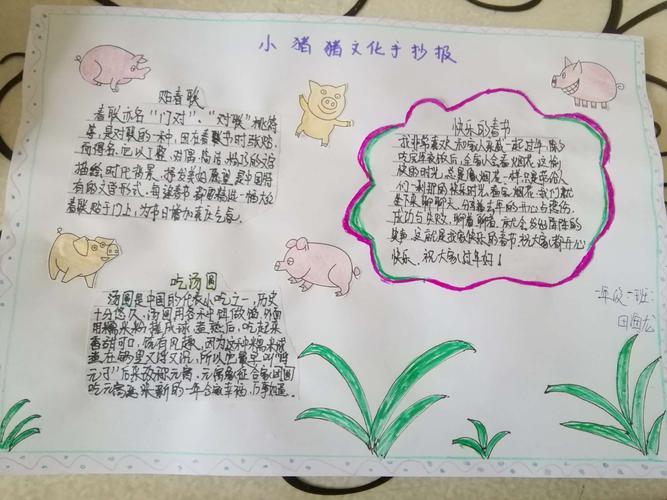 小猪猪文化手抄报
贴春联
春联亦名"门对"、"对联"桃符
等,是对联的一种,因在春节时张贴,
而得名。它以工整、对偶、简洁、精巧的文字
描绘时代背景,抒发美好愿望,是中国特
有的文学形式。每逢春节都要挑选一幅大红
春联贴于门上,为节日增加喜庆气氛。
快乐的春节
我非常喜欢和家人亲戚一起过年,除夕
吃完年夜饭后,全家人会看烟花,这愉
快的时光,总是像烟花一样,只是带给人
们一刹那的快乐时光。看完烟花,我们就
坐下来聊聊天,分享去年的开心与悲伤,
成功与失败。聊着聊着,就会发出阵阵的
笑声,这就是我家快乐的春节,祝大家都开心
快乐,祝大家过年好!
吃汤圆
汤圆是中国的代表小吃之一,历史
十分悠久。汤圆用各种
用糯米粉搓成球,煮熟后,吃起来
香甜可口,饶有风趣。因为这种糯米球
煮在锅里又浮又沉,所以它最早叫"浮
元子"后来改称元宵。元宵象征合家团圆
吃元宵意味新的一年合家幸福,万事如意。
一年级一班:
田国龙